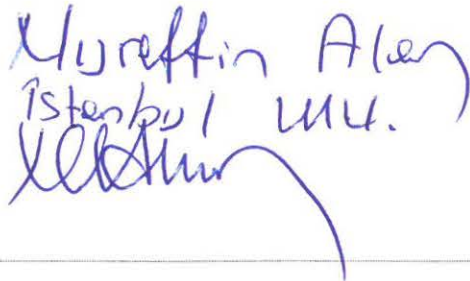 Nurettin Alan
İstanbul M.V.